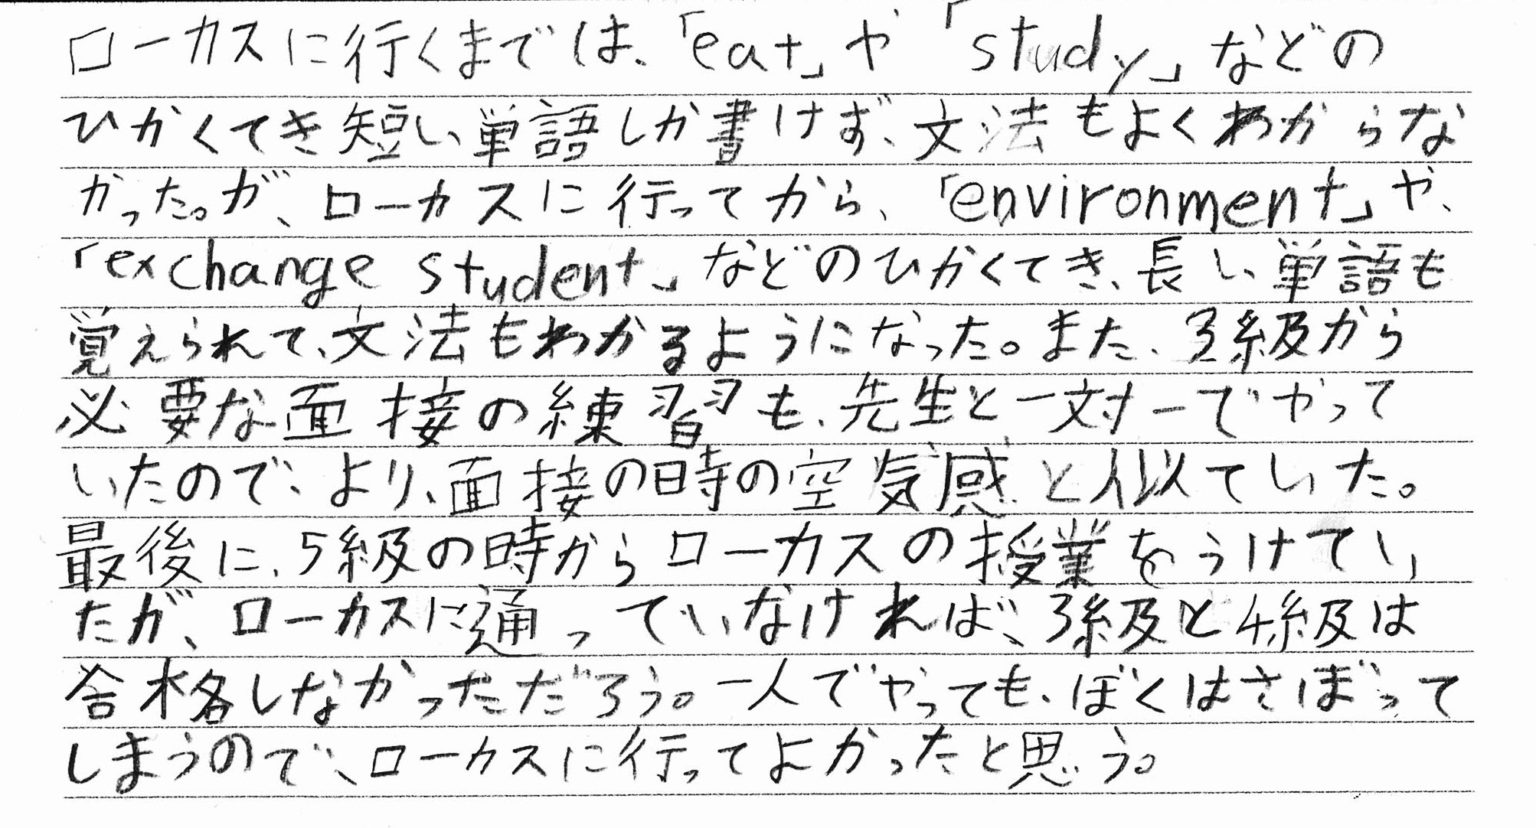 ローカスに行くまでは、「eat」や「study」などの
ひかくてき短い単語しか書けず、文法もよくわからな
かった。が、ローカスに行ってから、「environment」や、
「exchange student」などのひかくてき、長い単語も
覚えられて、文法もわかるようになった。また、3級から
必要な面接の練習も、先生と一対一でやって
いたので、より、面接の時の空気感と似ていた。
最後に、5級の時からローカスの授業をうけてい
たが、ローカスに通っていなければ、3級と4級は
合格しなかっただろう。一人でやっても、ぼくはさぼって
しまうので、ローカスに行ってよかったと思う。